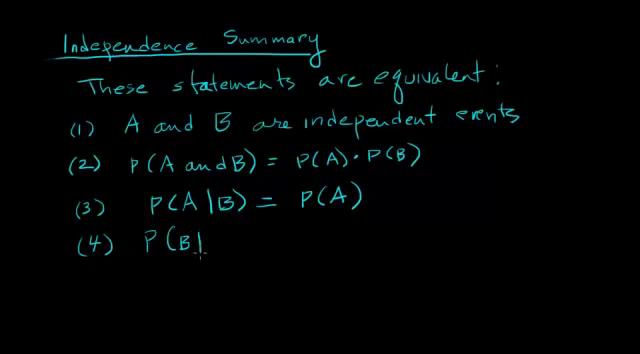 Independence Summary
These statements are equivalent:
(1) A and B are independent events
(2) P(A and B) = P(A) · P(B)
(3) P(A|B) = P(A)
(4) P(B|